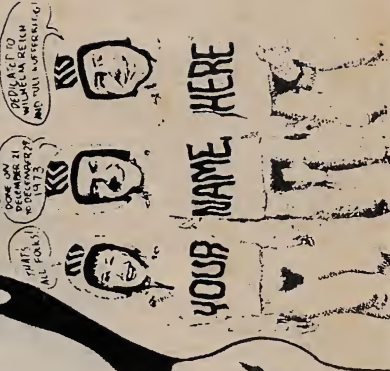 THATS
ALL FOLKS!
DONE ON
DECEMBER 21
TO DECEMBER 29
1973
DEDICATED TO
WILHELM REICH
AND TULI
YOUR NAME HERE